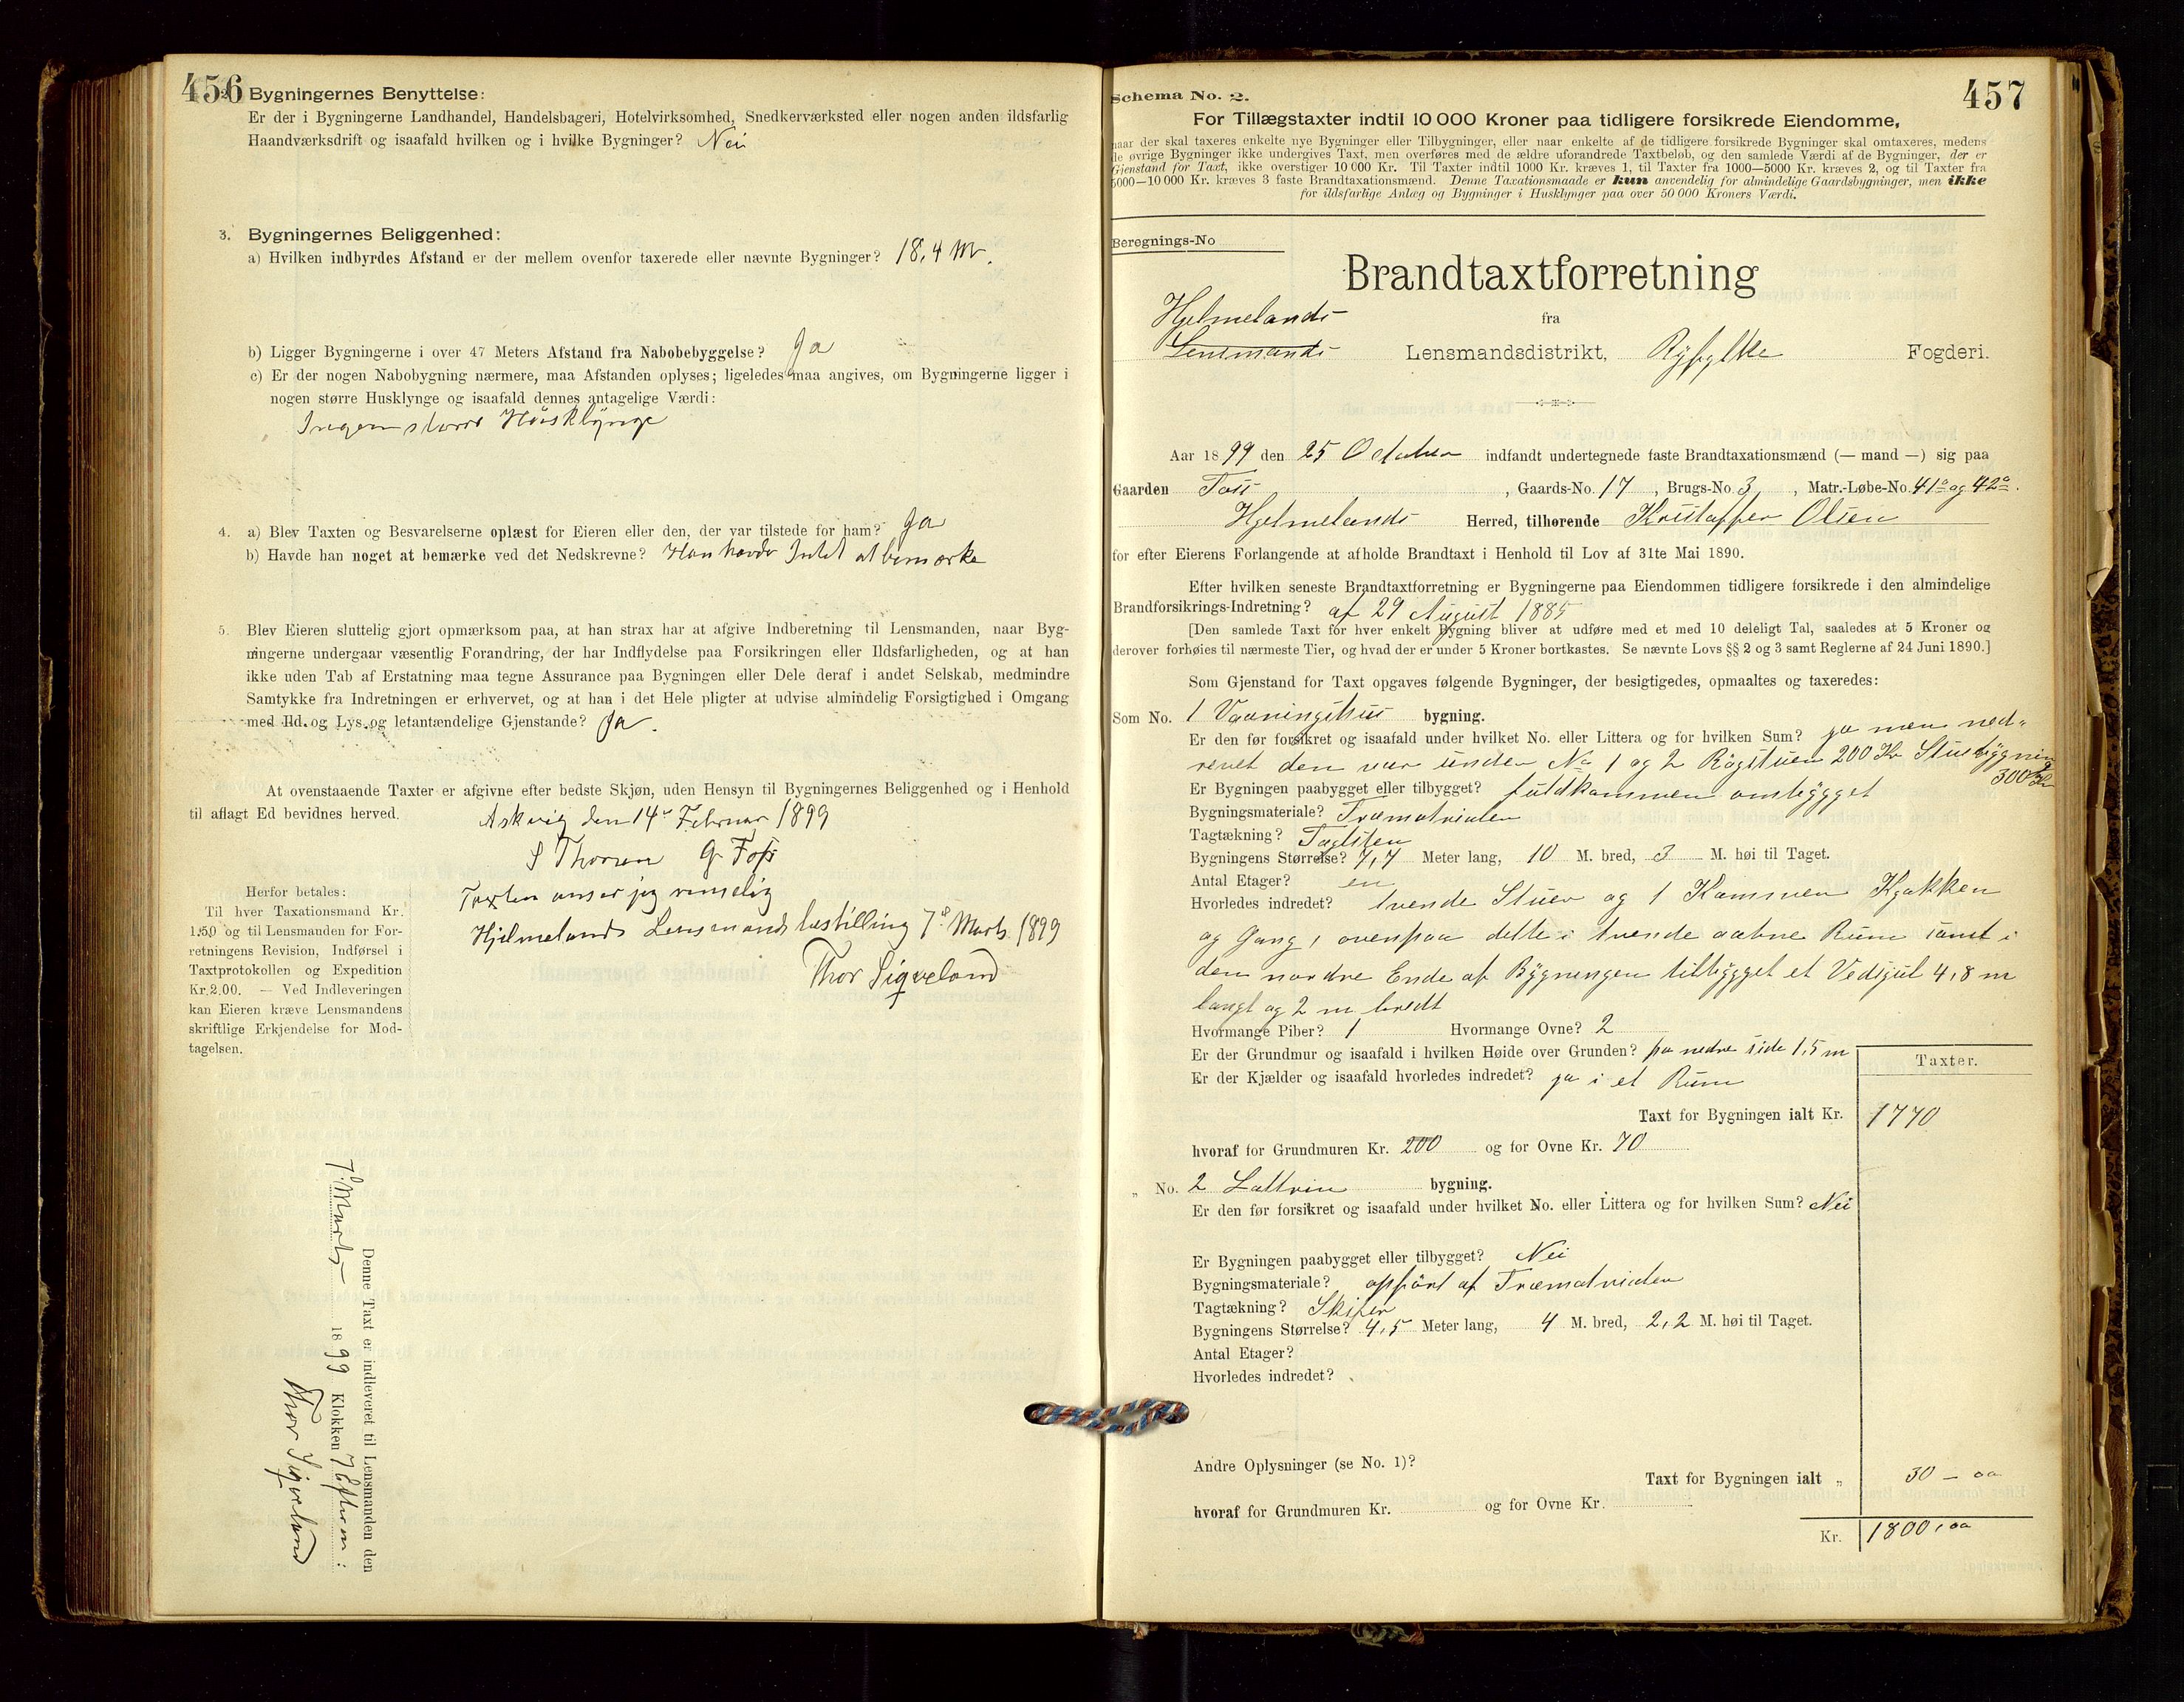 456
Bygningernes Benyttelse:
Er der i Bygningerne Landhandel, Handelsbageri, Hotelvirksomhed, Snedkerværksted eller nogen anden ildsfarlig
Haandværksdrift og isaafald hvilken og i hvilke Bygninger? Nei
3. Bygningernes Beliggenhed:
a) Hvilken indbyrdes Afstand er der mellem ovenfor taxerede eller nævnte Bygninger? 18,4 M.
b) Ligger Bygningerne i over 47 Meters Afstand fra Nabobebyggelse? Ja
c) Er der nogen Nabobygning nærmere, maa Afstanden oplyses; ligeledes maa angives, om Bygningerne ligger i
nogen større Husklynge og isaafald dennes antagelige Værdi:
Ingen større Huusklynge
4. a) Blev Taxten og Besvarelserne oplæst for Eieren eller den, der var tilstede for ham? Ja
b) Havde han noget at bemærke ved det Nedskrevne? Han havde Intet at bemærke
5. Blev Eieren sluttelig gjort opmærksom paa, at han strax har at afgive Indberetning til Lensmanden, naar Byg-
ningerne undergaar væsentlig Forandring, der har Indflydelse paa Forsikringen eller Ildsfarligheden, og at han
ikke uden Tab af Erstatning maa tegne Assurance paa Bygningen eller Dele deraf i andet Selskab, medmindre
Samtykke fra Indretningen er erhvervet, og at han i det Hele pligter at udvise almindelig Forsigtighed i Omgang
med Ild og Lys og letantændelige Gjenstande? Ja.
At ovenstaaende Taxter er afgivne efter bedste Skjøn, uden Hensyn til Bygningernes Beliggenhed og i Henhold
til aflagt Ed bevidnes herved.
Askvig den 14de Februar 1899
S Thorsen G Foss
Taxten anser jeg rimelig
Hjelmelands Lensmandsbestilling 7de Marts 1899
Thor Sigveland
Herfor betales:
Til hver Taxationsmand Kr.
1.50 og til Lensmanden for For-
retningens Revision, Indførsel i
Taxtprotokollen og Expedition
Kr. 2.00. — Ved Indleveringen
kan Eieren kræve Lensmandens
skriftlige Erkjendelse for Mod-
tagelsen.
Denne Taxt er indleveret til Lensmanden den
7de Marts 1899 Klokken 7 Efterm:
Thor Sigveland
457
Schema No. 2.
For Tillægstaxter indtil 10 000 Kroner paa tidligere forsikrede Eiendomme,
naar der skal taxeres enkelte nye Bygninger eller Tilbygninger, eller naar enkelte af de tidligere forsikrede Bygninger skal omtaxeres, medens
de øvrige Bygninger ikke undergives Taxt, men overføres med de ældre uforandrede Taxtbeløb, og den samlede Værdi af de Bygninger, der er
Gjenstand for Taxt, ikke overstiger 10 000 Kr. Til Taxter indtil 1000 Kr. kræves 1, til Taxter fra 1000—5000 Kr. kræves 2, og til Taxter fra
5000—10 000 Kr. kræves 3 faste Brandtaxationsmænd. Denne Taxationsmaade er kun anvendelig for almindelige Gaardsbygninger, men ikke
for ildsfarlige Anlæg og Bygninger i Husklynger paa over 50 000 Kroners Værdi.
Beregnings-No
Brandtaxtforretning
Hjelmelands
fra
Lensmands Lensmandsdistrikt, Ryfylke Fogderi.
Aar 1899 den 25 October indfandt undertegnede faste Brandtaxationsmænd (— mand —) sig paa
Gaarden Foss, Gaards-No. 17, Brugs-No. 3, Matr.-Løbe-No. 41a og 42a.
Hjelmelands Herred, tilhørende Kristoffer Olsen
for efter Eierens Forlangende at afholde Brandtaxt i Henhold til Lov af 31te Mai 1890.
Efter hvilken seneste Brandtaxtforretning er Bygningerne paa Eiendommen tidligere forsikrede i den almindelige
Brandforsikrings-Indretning? af 29 August 1885
[Den samlede Taxt for hver enkelt Bygning bliver at udføre med et med 10 deleligt Tal, saaledes at 5 Kroner og
derover forhøies til nærmeste Tier, og hvad der er under 5 Kroner bortkastes. Se nævnte Lovs §§ 2 og 3 samt Reglerne af 24 Juni 1890.]
Som Gjenstand for Taxt opgaves følgende Bygninger, der besigtigedes, opmaaltes og taxeredes:
Som No. 1 Vaaningshus bygning.
Er den før forsikret og isaafald under hvilket No. eller Littera og for hvilken Sum? ja men ned-
revet den var under No 1 og 2 Røgstuen 200 Kr Stuebygning
300 Kr
Er Bygningen paabygget eller tilbygget? fuldkommen ombygget
Bygningsmateriale? Træmatrialer
Tagtækning? Taglsten
Bygningens Størrelse? 7,7 Meter lang, 10 M. bred, 3 M. høi til Taget.
Antal Etager? en
Hvorledes indredet? tvende Stuer og 1 Kammer Kjøkken
og Gang, ovenpaa dette i tvende aabne Rum samt i
den nordre Ende af Bygningen tilbygget et Vedsjul 4,8 m
langt og 2 m bredt
Hvormange Piber? 1 Hvormange Ovne? 2
Er der Grundmur og isaafald i hvilken Høide over Grunden? paa nedre side 1,5 m
Er der Kjælder og isaafald hvorledes indredet? ja i et Rum
Taxter.
Taxt for Bygningen ialt Kr. 1770
hvoraf for Grundmuren Kr. 200 og for Ovne Kr. 70
„ No. 2 Lattrin bygning.
Er den før forsikret og isaafald under hvilket No. eller Littera og for hvilken Sum? Nei
Er Bygningen paabygget eller tilbygget? Nei
Bygningsmateriale? opført af Træmatrialer
Tagtækning? Skifer
Bygningens Størrelse? 4,5 Meter lang, 4 M. bred, 2,2 M. høi til Taget.
Antal Etager?
Hvorledes indredet?
Andre Oplysninger (se No. 1)?
Taxt for Bygningen ialt „ 30 - oo
hvoraf for Grundmuren Kr. og for Ovne Kr.
Kr. 1800, oo